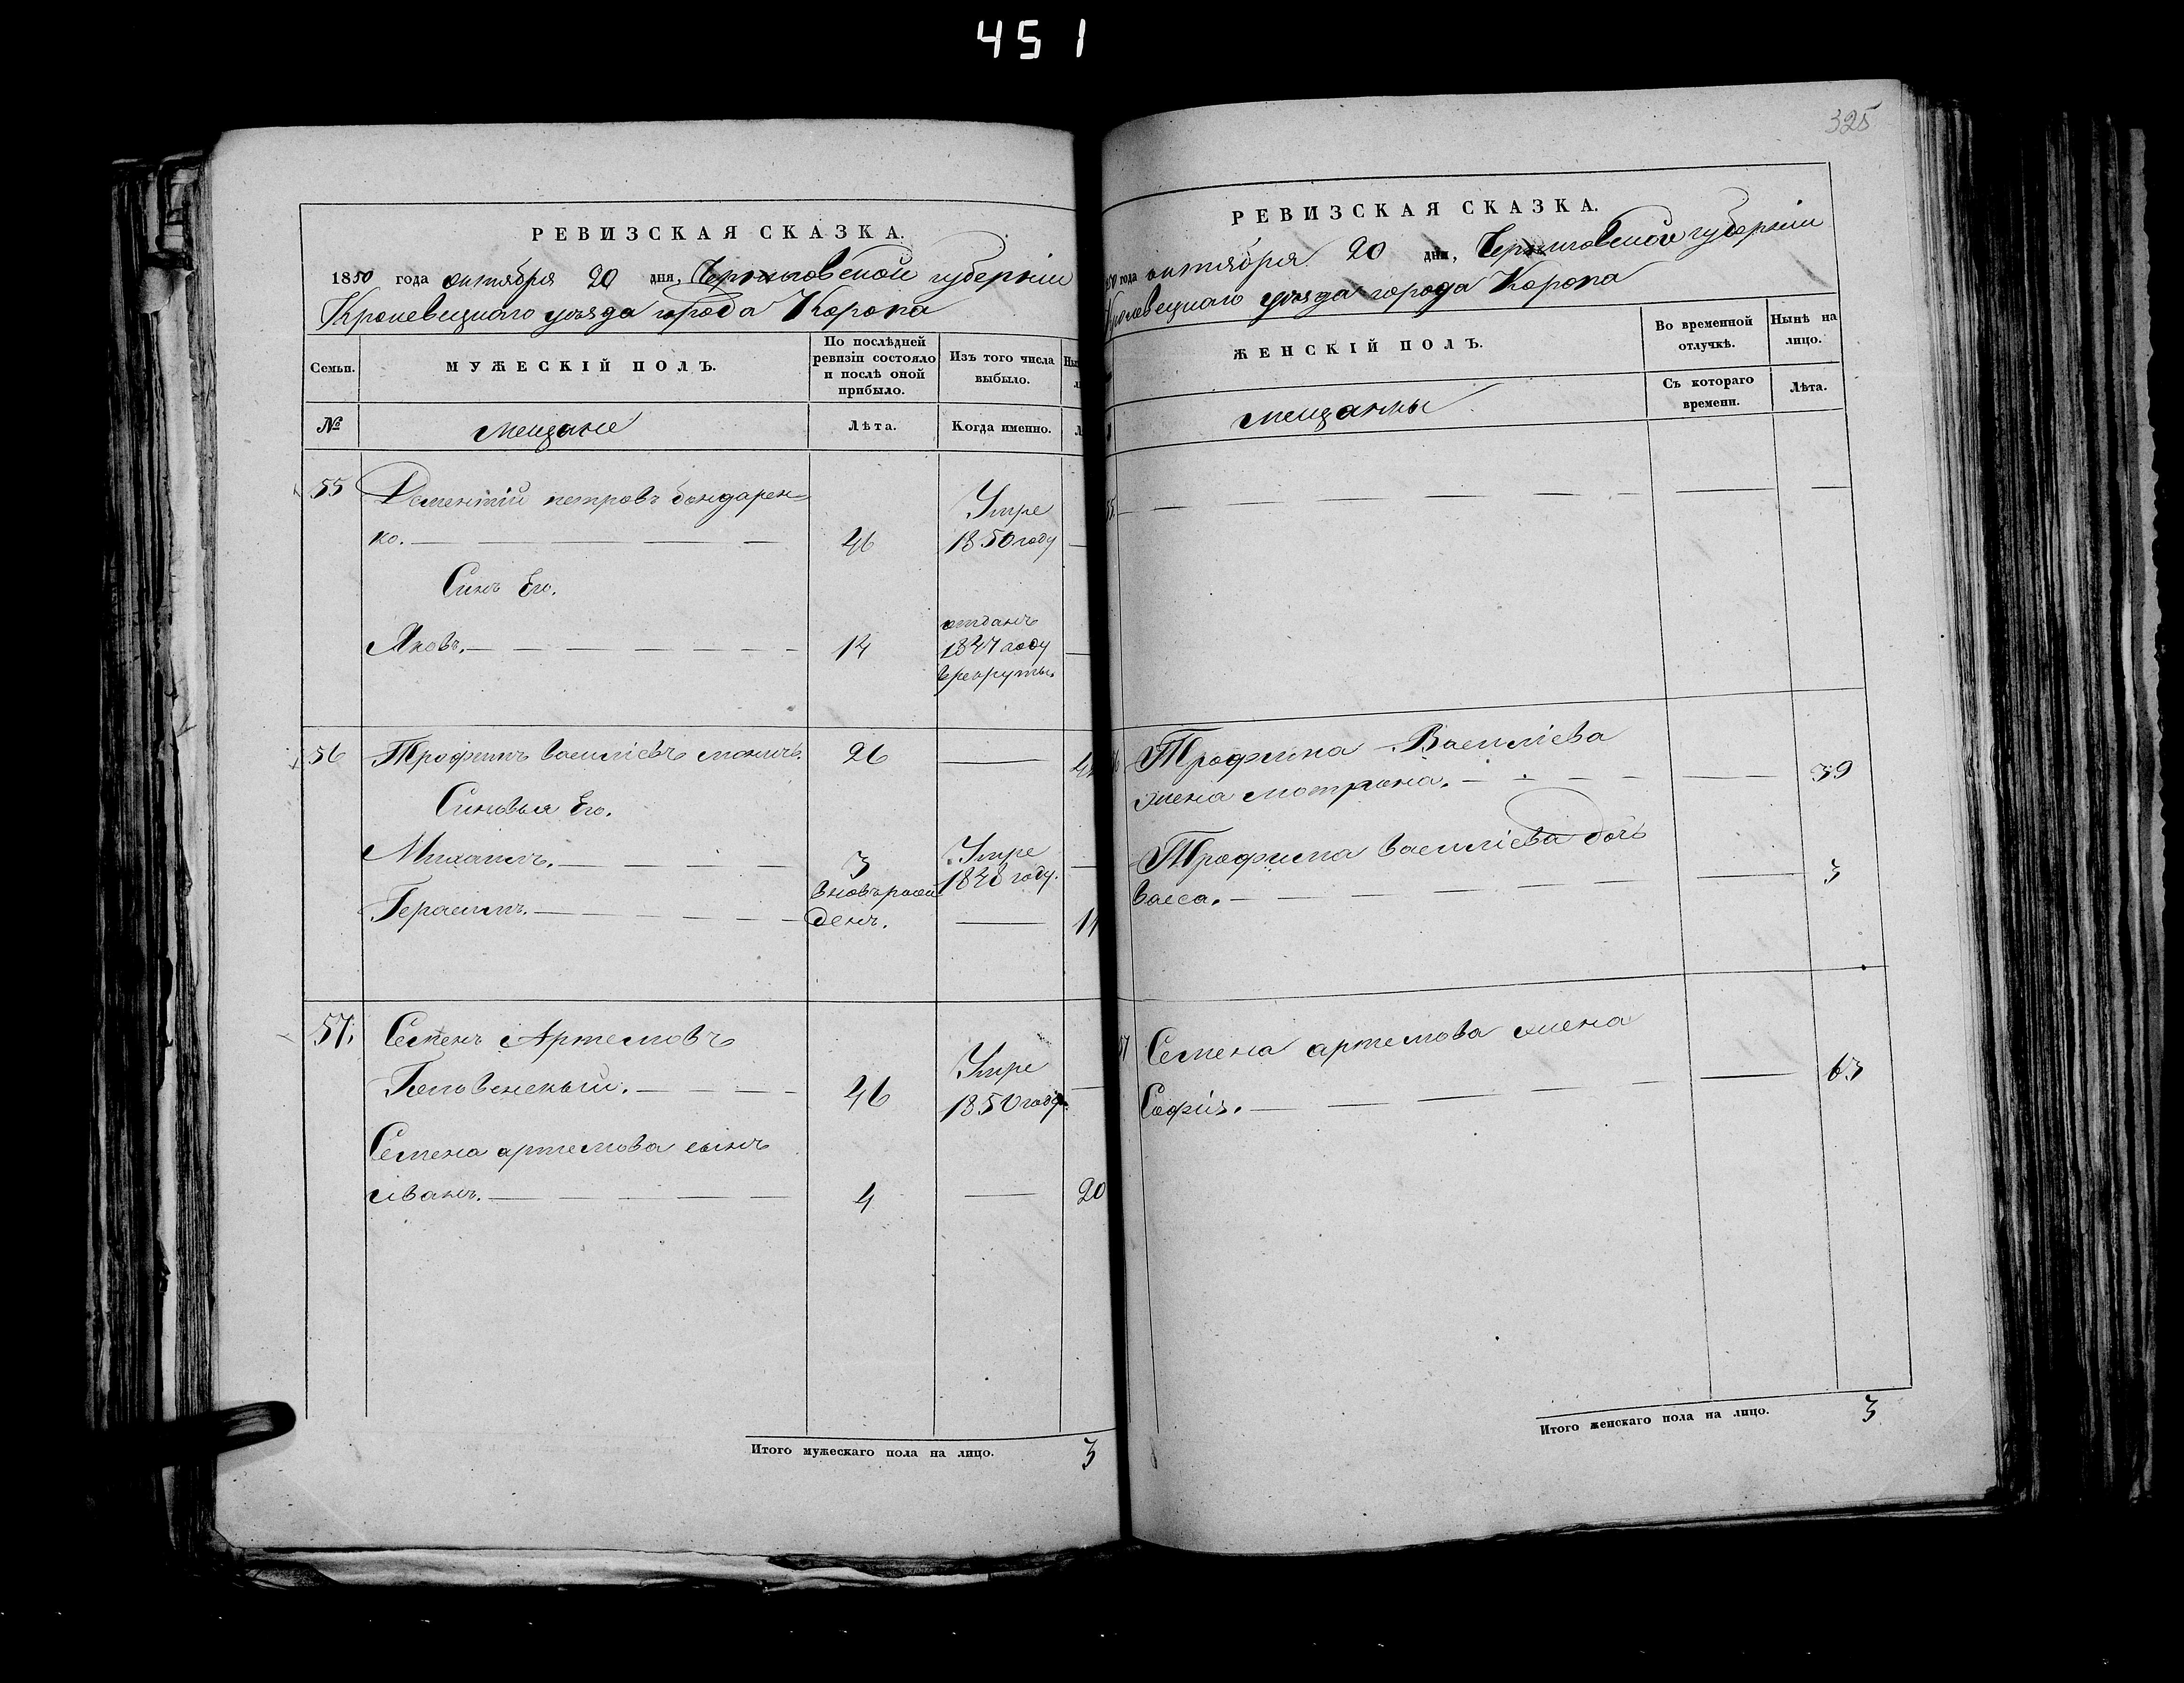 451
325
РЕВИЗСКАЯ СКАЗКА.
1850 года октября 20 дня, Черниговской губернии
Кролевецкаго уѣзда города Коропа
Семьи.
МУЖЕСКІЙ ПОЛЪ.
По послѣдней
ревизіи состояло
и послѣ оной
прибыло.
Изъ того числа
выбыло.
№
мещане
Лѣта.
Когда именно.
55 Дементій петровъ бондарен-
ко. 46 Умре 1850 году
Синъ Его.
Яковъ. 14 отданъ 1847 году
в рекруты.
56 Трофимъ василіевъ 26
Синовья Его.
Михаилъ. 3 Умре 1848 году.
Герасимъ. вновь рож
денъ. 14
57. Семенъ Артемовъ
46 Умре 1850 году
Семена артемова сынъ
иванъ. 4 20
Итого мужескаго пола на лицо. 3
РЕВИЗСКАЯ СКАЗКА.
года октября 20 дня, Черниговской губерніи
Кролевецкаго уѣзда города Коропа
ЖЕНСКІЙ ПОЛЪ.
Во временной
отлучкѣ.
Нынѣ на
лицо.
мещанки
Съ котораго
времени.
Лѣта.
55.
Трофима Василіева
жена мотрона. 39
Трофима василіева дочь
васса. 3
57 Семена артемова жена
Софія. 63
Итого женскаго пола на лицо. 3